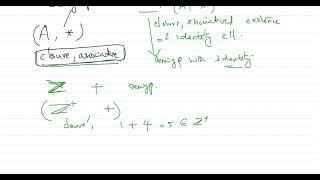 (A, *)
closure, associative
closure, associative, existence
of identity ell.
semigp with identity
Z + semigp.
(Z⁺ +)
closure, 1 + 4 = 5 ∈ Z⁺